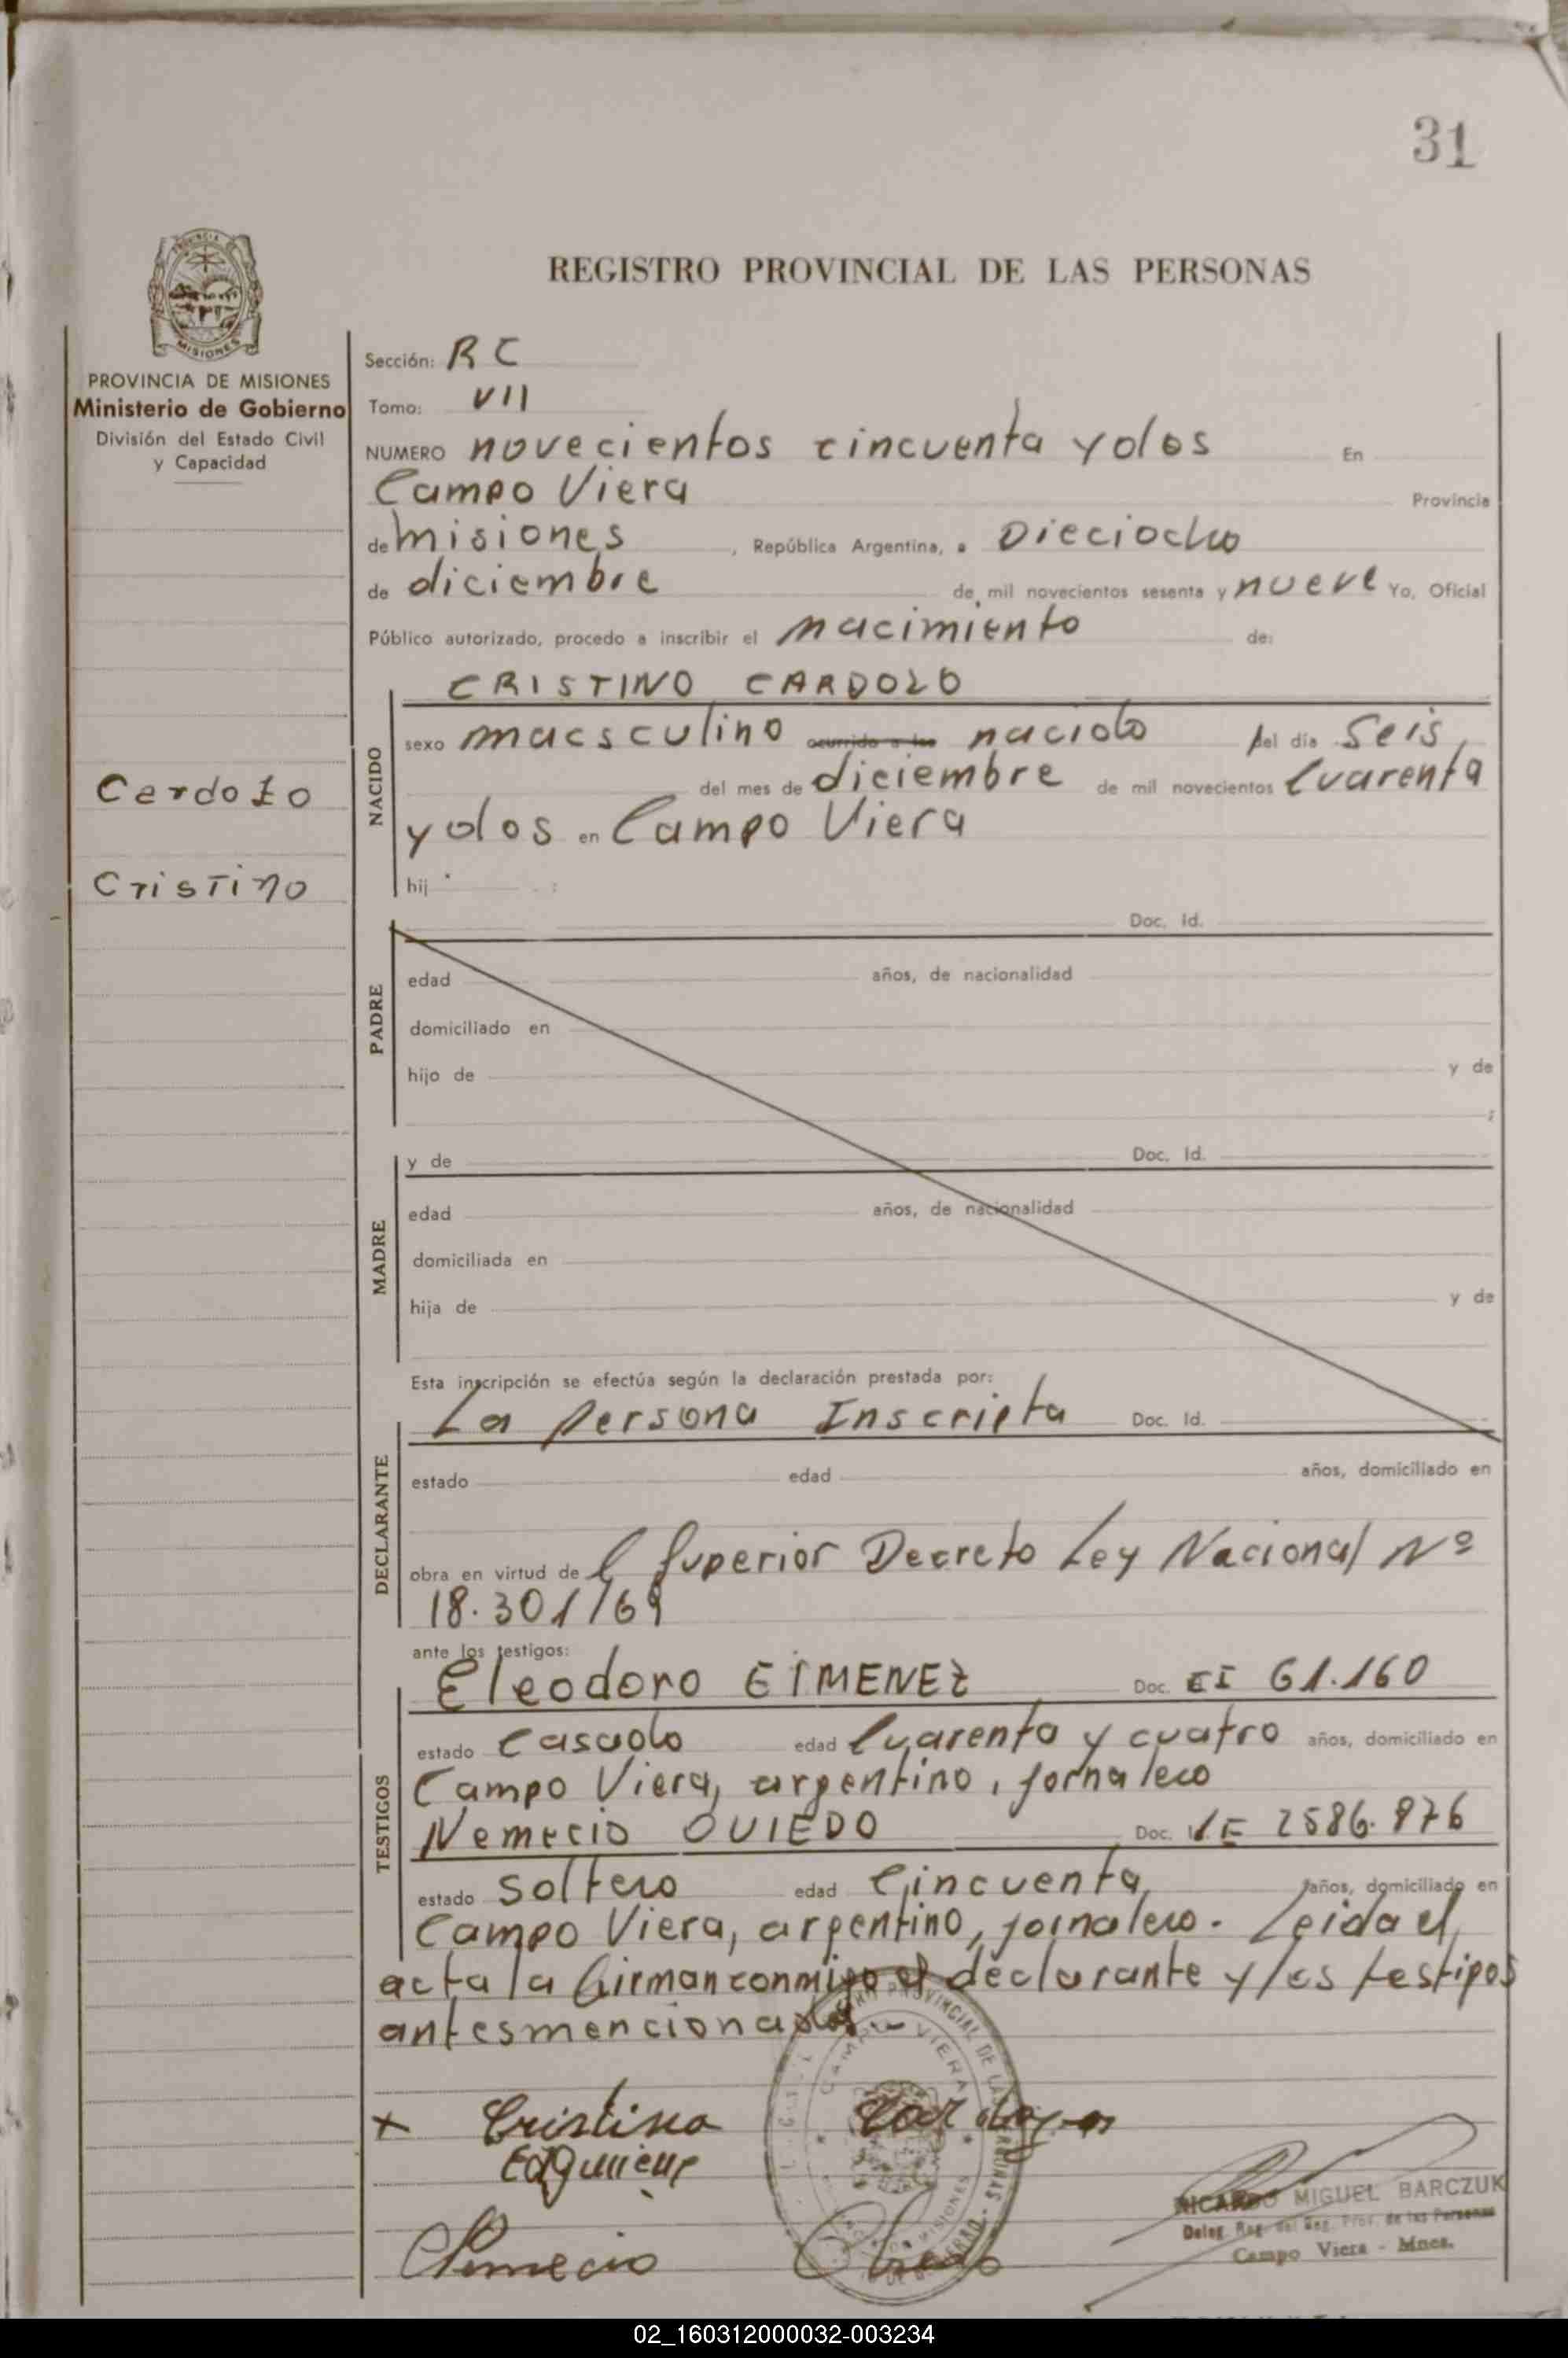 31
PROVINCIA DE
MISIONES
PROVINCIA DE MISIONES
Ministerio de Gobierno
División del Estado Civil
y Capacidad
Cardozo
Cristino
REGISTRO PROVINCIAL DE LAS PERSONAS
Sección: RC
Tomo: VII
NUMERO novecientos cincuenta y dos En
Campo Viera Provincia
de misiones, República Argentina, a Dieciocho
de diciembre de mil novecientos sesenta y nueve Yo, Oficial
Público autorizado, procedo a inscribir el nacimiento de:
NACIDO
CRISTINO CARDOZO
sexo macsculino ocurrido a las nacido del día Seis
del mes de diciembre de mil novecientos Cuarenta
y dos en Campo Viera
hij
PADRE
Doc. Id.
edad años, de nacionalidad
domiciliado en
hijo de y de
;
MADRE
y de Doc. Id.
edad años, de nacionalidad
domiciliada en
hija de y de
Esta inscripción se efectúa según la declaración prestada por:
DECLARANTE
La persona Inscripta Doc. Id.
estado edad años, domiciliado en
obra en virtud de l Superior Decreto Ley Nacional Nº
18.301/69
ante los testigos:
TESTIGOS
Eleodoro GIMENEZ Doc. CI 61.160
estado Casado edad Cuarenta y cuatro años, domiciliado en
Campo Viera, argentino, jornalero
Nemecio OVIEDO Doc. LE 2586.876
estado soltero edad Cincuenta años, domiciliado en
Campo Viera, argentino, jornalero. Leida el
acta la firman conmigo el declarante y los testigos
antesmencionados
x Cristino Cardozo
Nemecio Oviedo
RICARDO MIGUEL BARCZUK
Deleg. Reg. del Reg. Prov. de las Personas
Campo Viera - Mnes.
02_160312000032-003234